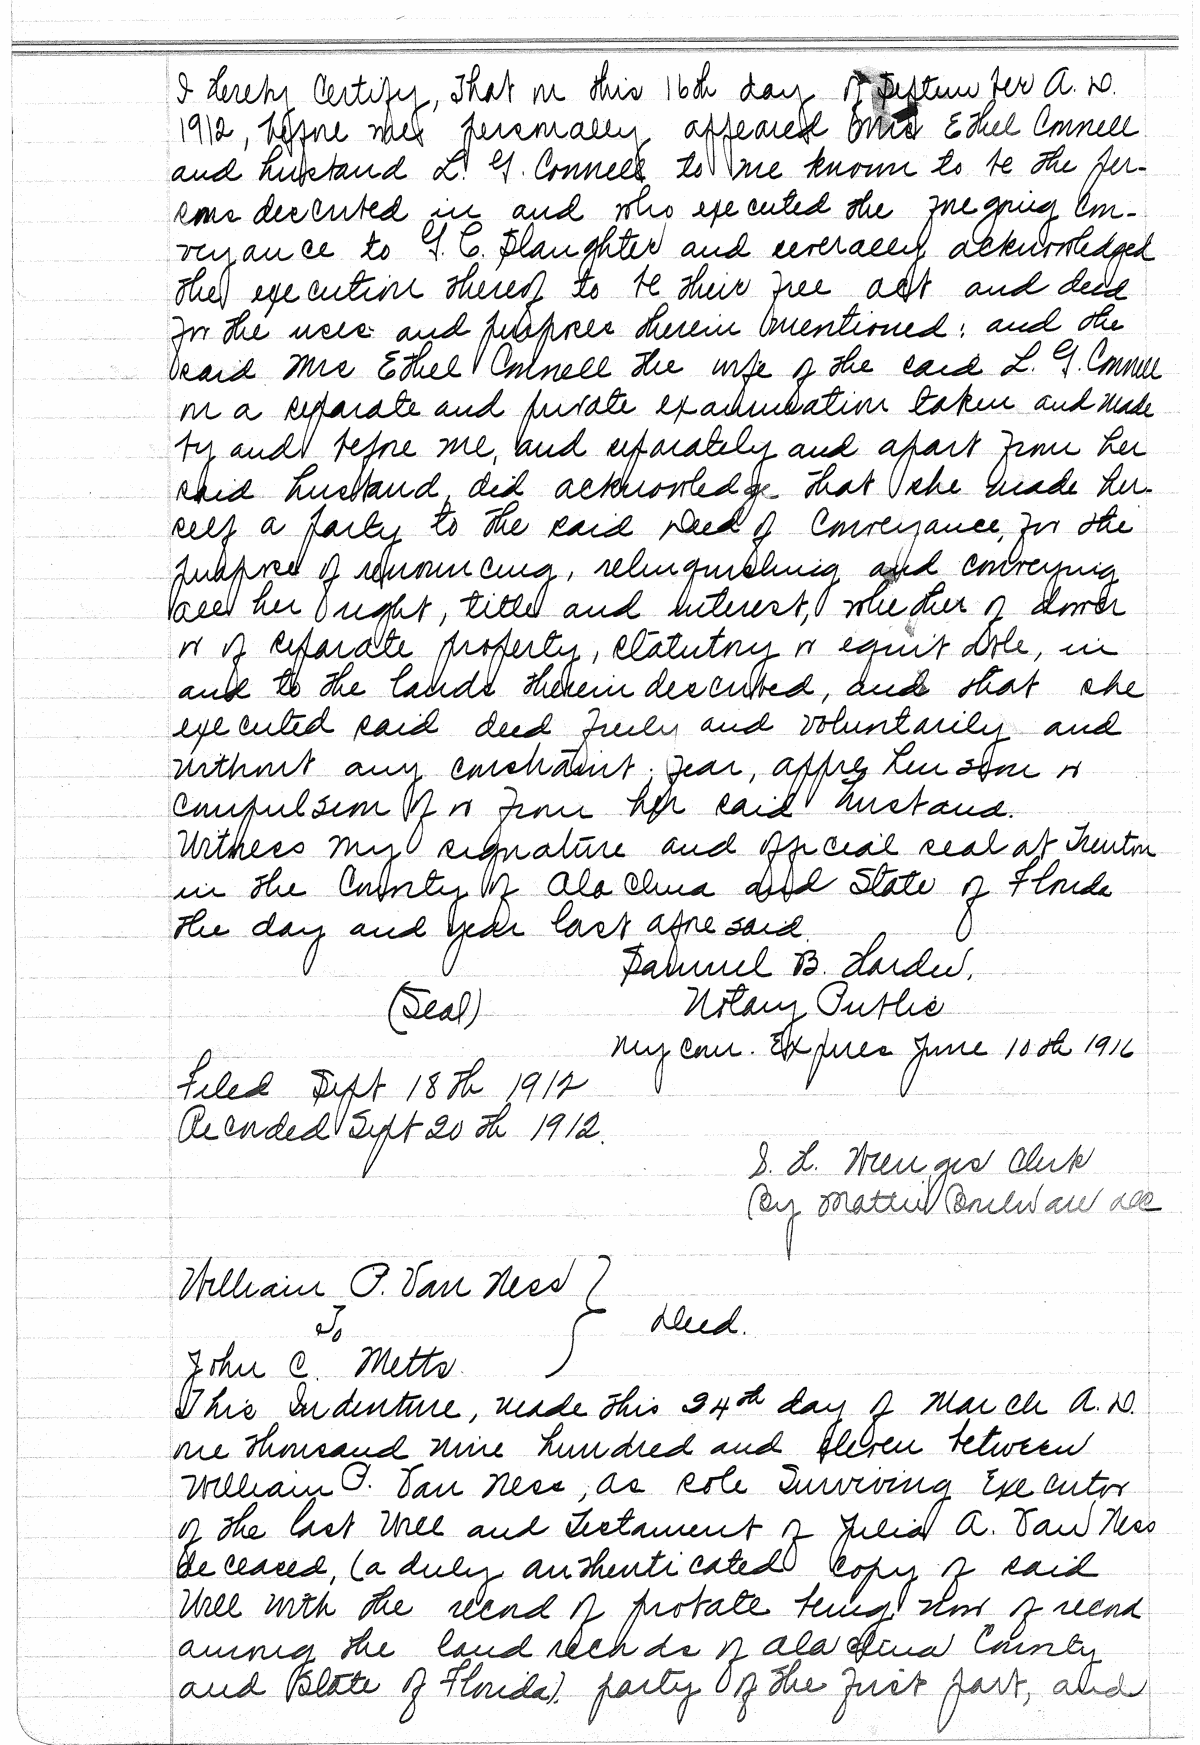 I hereby Certify, That on this 16th day of September A.D.
1912, before me personally appeared Mrs Ethel Connell
and husband L. G. Connell to me known to be the per-
sons described in and who executed the foregoing Con-
veyance to G. C. Slaughter and severally acknowledged
the execution thereof to be their free act and deed
for the uses and purposes therein mentioned; and the
said Mrs Ethel Connell the wife of the said L. G. Connell
on a separate and private examination taken and made
by and before me, and separately and apart from her
said husband, did acknowledge that she made her-
self a party to the said Deed of Conveyance, for the
purpose of renouncing, relinquishing and conveying
all her right, title and interest, whether of dower
or of separate property, statutory or equitable, in
and to the lands therein described, and that she
executed said deed freely and voluntarily and
without any constraint, fear, apprehension or
compulsion of or from her said husband.
Witness my signature and official seal at Trenton
in the County of Alachua and State of Florida
the day and year last aforesaid.
Samuel B. Harden,
(Seal) Notary Public
My com. Expires June 10th 1916
Filed Sept 18th 1912
Recorded Sept 20th 1912.
S. H. Wienges Clerk
By Mattie DC
William P. Van Ness
To Deed.
John C. Metts.
This Indenture, made this 24th day of March A.D.
one thousand nine hundred and eleven between
William P. Van Ness, as sole Surviving Executor
of the last Will and Testament of Julia A. Van Ness
deceased, (a duly authenticated copy of said
Will with the record of probate being now of record
among the land records of Alachua County
and State of Florida). party of the first part, and